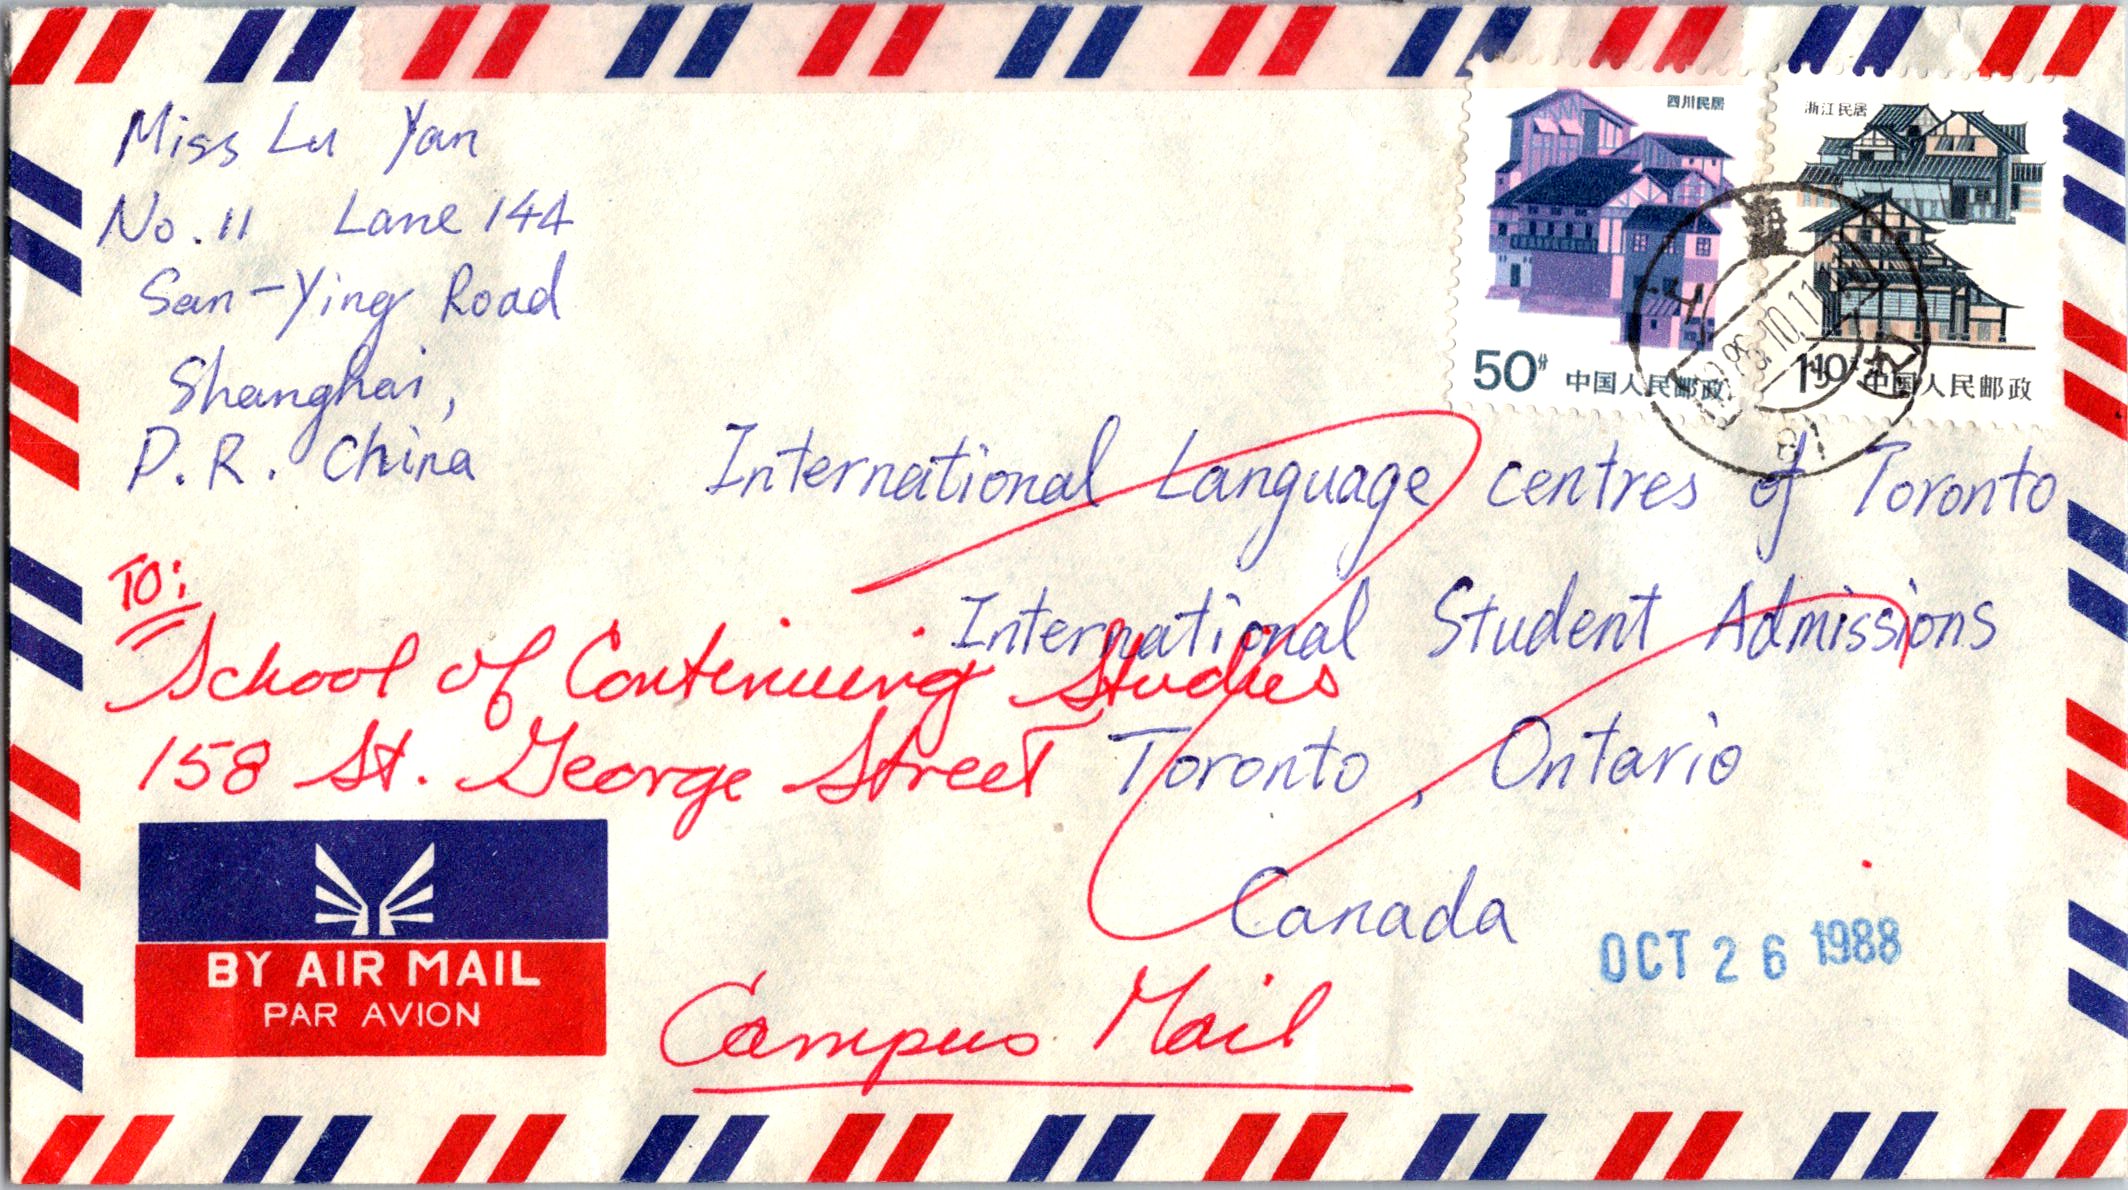 Miss Lu Yan
No. 11 Lane 144
San-Ying Road
Shanghai,
P. R. China
四川民居
50分 中国人民邮政
浙江民居
中国人民邮政
上海
1988.10.11
International Language centres of Toronto
International Student Admissions
Toronto, Ontario
Canada
TO:
School of Continuing Studies
158 St. George Street
Campus Mail
BY AIR MAIL
PAR AVION
OCT 26 1988